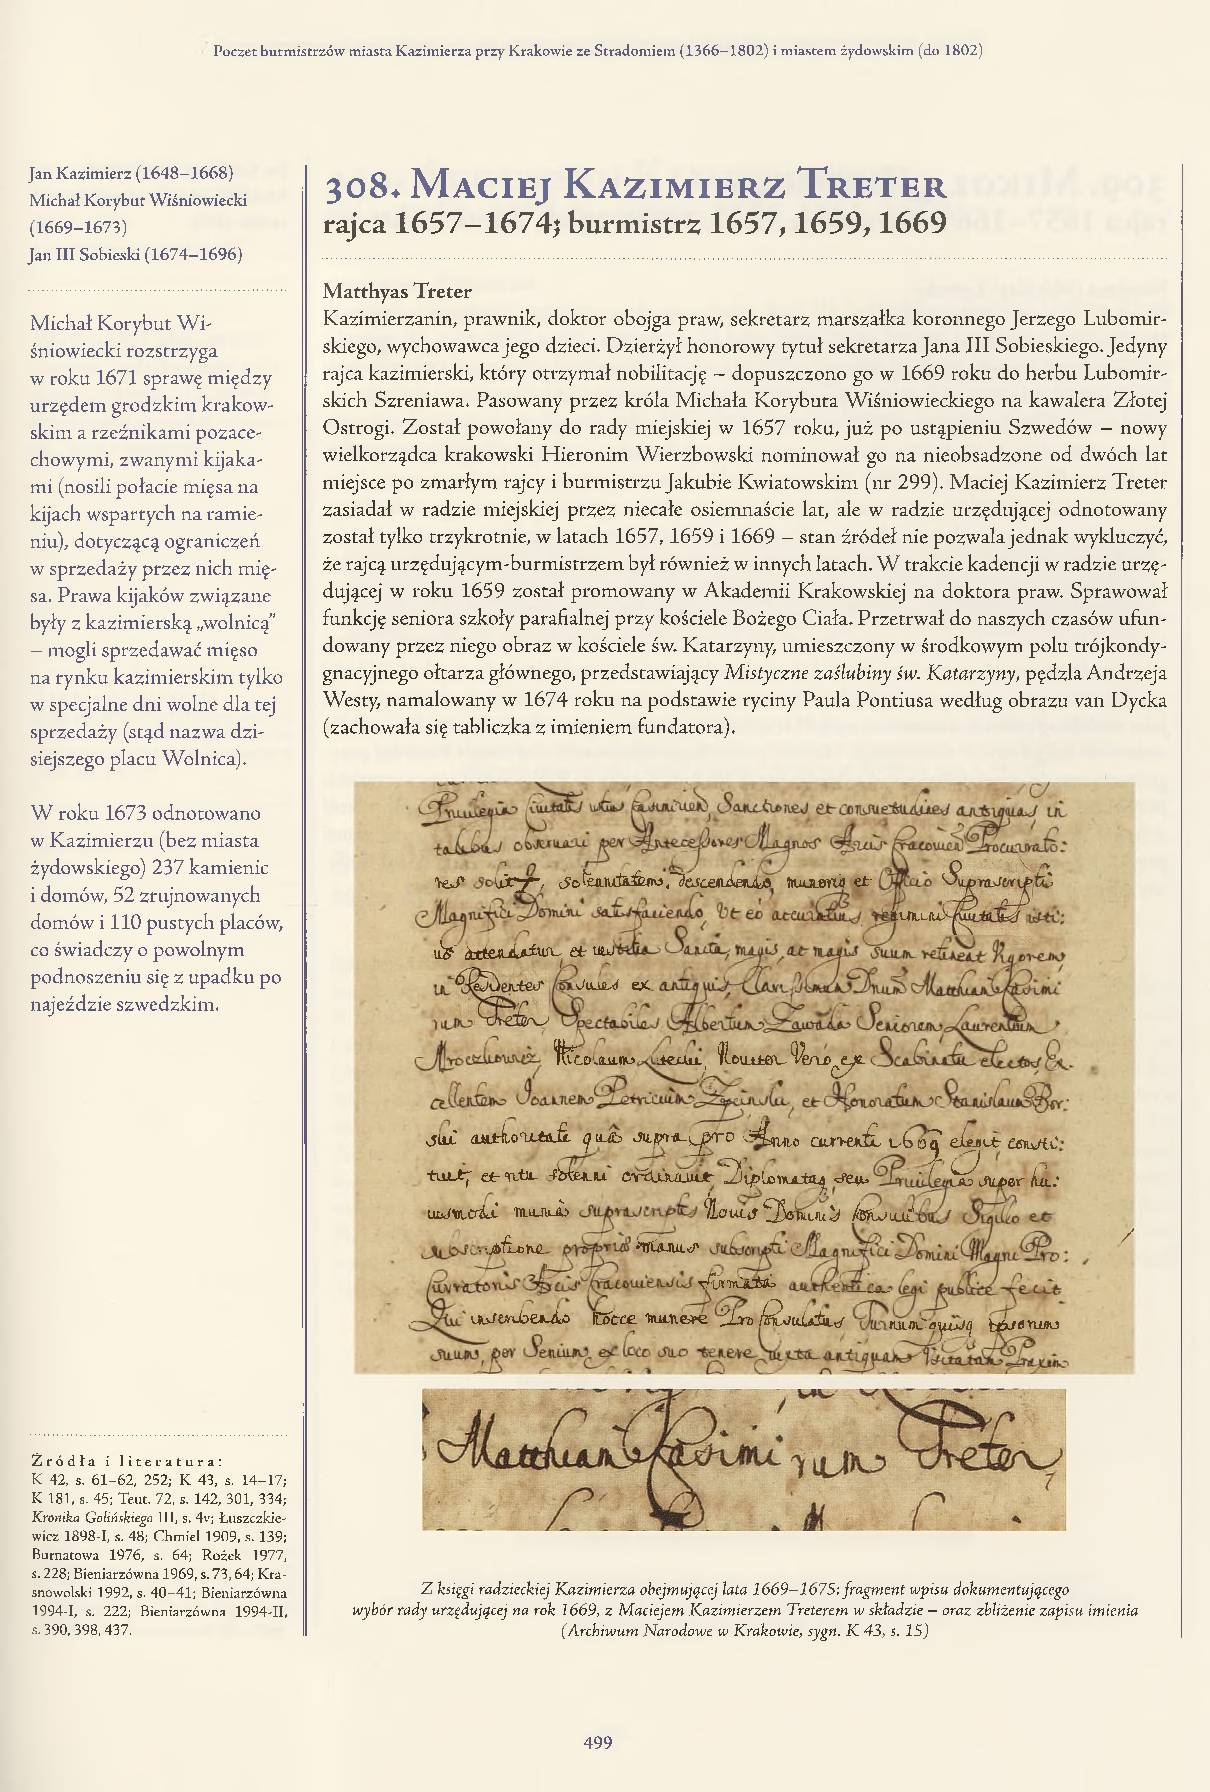 Poczet burmistrzów miasta Kazimierza przy Krakowie ze Stradomiem (1366–1802) i miastem żydowskim (do 1802)
Jan Kazimierz (1648–1668)
Michał Korybut Wiśniowiecki
(1669–1673)
Jan III Sobieski (1674–1696)
Michał Korybut Wi-
śniowiecki rozstrzyga
w roku 1671 sprawę między
urzędem grodzkim krakow-
skim a rzeźnikami pozace-
chowymi, zwanymi kijaka-
mi (nosili połacie mięsa na
kijach wspartych na ramie-
niu), dotyczącą ograniczeń
w sprzedaży przez nich mię-
sa. Prawa kijaków związane
były z kazimierską „wolnicą”
– mogli sprzedawać mięso
na rynku kazimierskim tylko
w specjalne dni wolne dla tej
sprzedaży (stąd nazwa dzi-
siejszego placu Wolnica).
W roku 1673 odnotowano
w Kazimierzu (bez miasta
żydowskiego) 237 kamienic
i domów, 52 zrujnowanych
domów i 110 pustych placów,
co świadczy o powolnym
podnoszeniu się z upadku po
najeździe szwedzkim.
Źródła i literatura:
K 42, s. 61–62, 252; K 43, s. 14–17;
K 181, s. 45; Teut. 72, s. 142, 301, 334;
Kronika Golińskiego III, s. 4v; Łuszczkie-
wicz 1898-I, s. 48; Chmiel 1909, s. 139;
Burnatowa 1976, s. 64; Rożek 1977,
s. 228; Bieniarzówna 1969, s. 73, 64; Kra-
snowolski 1992, s. 40–41; Bieniarzówna
1994-I, s. 222; Bieniarzówna 1994-II,
s. 390, 398, 437.
308. Maciej Kazimierz Treter
rajca 1657–1674; burmistrz 1657, 1659, 1669
Matthyas Treter
Kazimierzanin, prawnik, doktor obojga praw, sekretarz marszałka koronnego Jerzego Lubomir-
skiego, wychowawca jego dzieci. Dzierżył honorowy tytuł sekretarza Jana III Sobieskiego. Jedyny
rajca kazimierski, który otrzymał nobilitację – dopuszczono go w 1669 roku do herbu Lubomir-
skich Szreniawa. Pasowany przez króla Michała Korybuta Wiśniowieckiego na kawalera Złotej
Ostrogi. Został powołany do rady miejskiej w 1657 roku, już po ustąpieniu Szwedów – nowy
wielkorządca krakowski Hieronim Wierzbowski nominował go na nieobsadzone od dwóch lat
miejsce po zmarłym rajcy i burmistrzu Jakubie Kwiatowskim (nr 299). Maciej Kazimierz Treter
zasiadał w radzie miejskiej przez niecałe osiemnaście lat, ale w radzie urzędującej odnotowany
został tylko trzykrotnie, w latach 1657, 1659 i 1669 – stan źródeł nie pozwala jednak wykluczyć,
że rajcą urzędującym-burmistrzem był również w innych latach. W trakcie kadencji w radzie urzę-
dującej w roku 1659 został promowany w Akademii Krakowskiej na doktora praw. Sprawował
funkcję seniora szkoły parafialnej przy kościele Bożego Ciała. Przetrwał do naszych czasów ufun-
dowany przez niego obraz w kościele św. Katarzyny, umieszczony w środkowym polu trójkondy-
gnacyjnego ołtarza głównego, przedstawiający Mistyczne zaślubiny św. Katarzyny, pędzla Andrzeja
Westy, namalowany w 1674 roku na podstawie ryciny Paula Pontiusa według obrazu van Dycka
(zachowała się tabliczka z imieniem fundatora).
Sanctiones et consuetudines antiquas in
observari per Antecessores Magnos Arcis
et Officio Suprascripti
Magnifici Domini satisfaciendo
magis ac magis suum retineat
Consules ex antiquis
Treter Spectabiles Albertum Seniorem Laurentium
Nicolaum
Joannem et Honoratum
authoritate qua supra pro Anno currenti 1669 elegit
et ritu solenni ordinavit Diplomata seu Privilegia super
munia suprascriptis Novis Dominis Consulibus Sigillo et
manus subscripti Magnifici Domini Magni Pro
firmata authentica legi publice fecit
munere Pro Consulatus
suum per Senium ex loco suo tenere iuxta antiquam
Matthiam Casimi rum Treter
Z księgi radzieckiej Kazimierza obejmującej lata 1669–1675: fragment wpisu dokumentującego
wybór rady urzędującej na rok 1669, z Maciejem Kazimierzem Treterem w składzie – oraz zbliżenie zapisu imienia
(Archiwum Narodowe w Krakowie, sygn. K 43, s. 15)
499